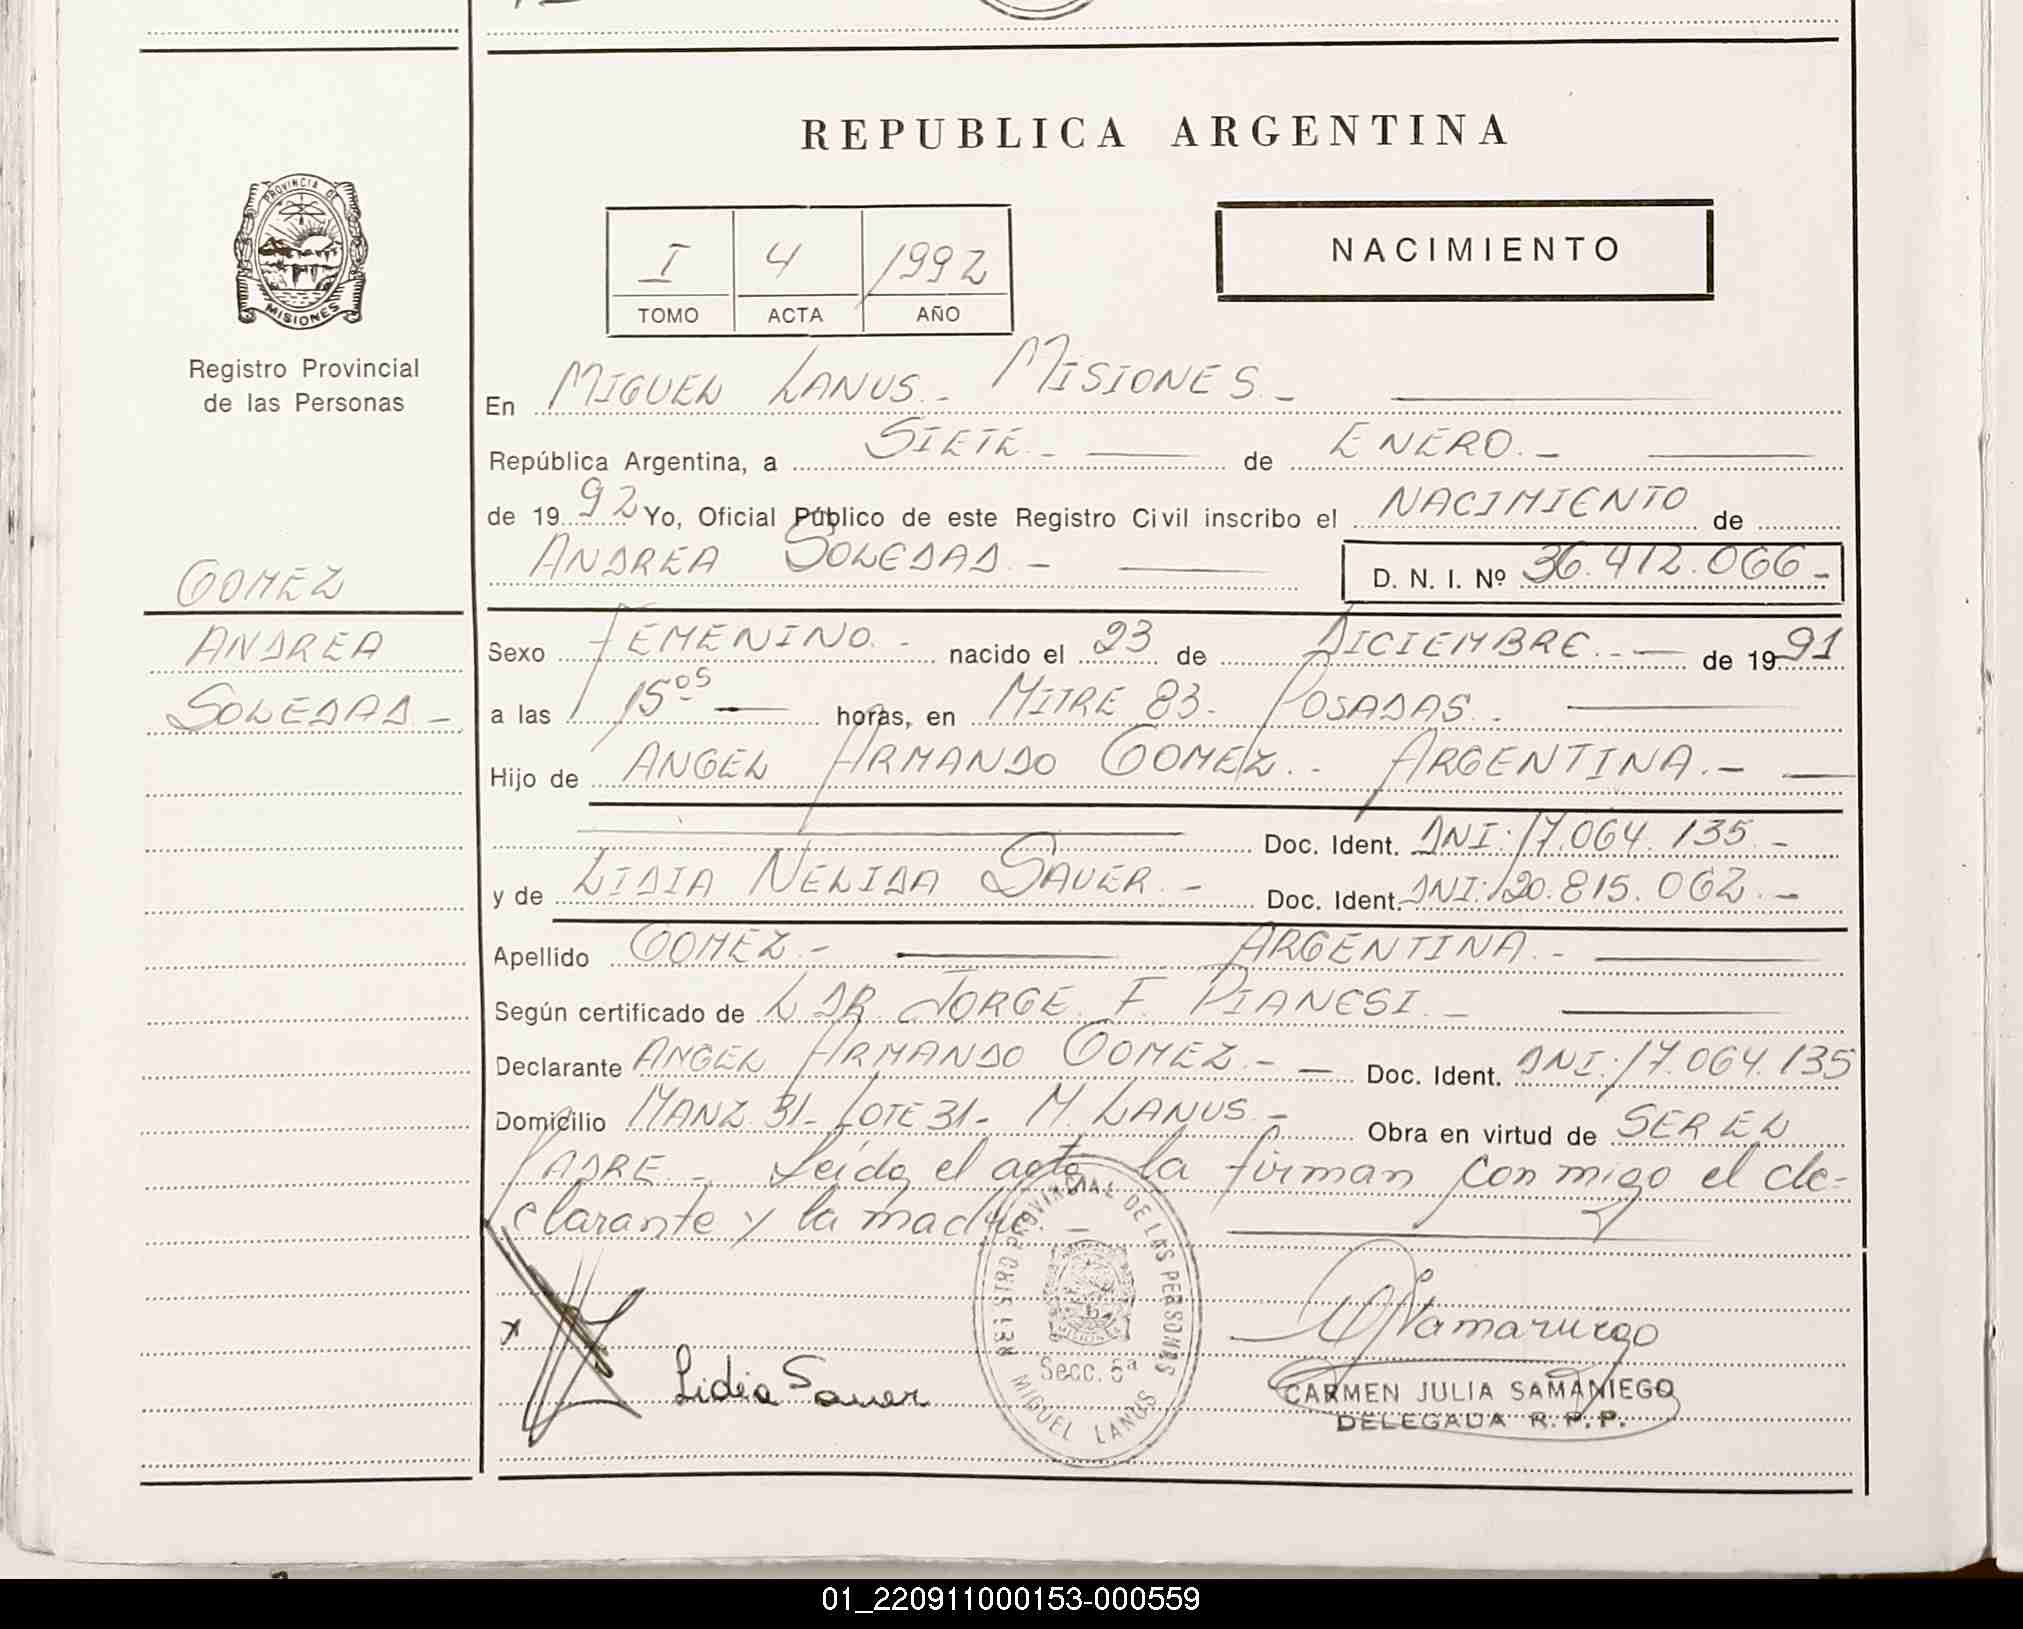 REPUBLICA ARGENTINA
PROVINCIA DE
MISIONES
Registro Provincial
de las Personas
I 4 1992
TOMO ACTA AÑO
NACIMIENTO
En MIGUEL LANUS.- MISIONES.-
República Argentina, a SIETE.- de ENERO.-
de 1992 Yo, Oficial Público de este Registro Civil inscribo el NACIMIENTO de
ANDREA SOLEDAD.- D. N. I. Nº 36.412.066-
GOMEZ
ANDREA
SOLEDAD-
Sexo FEMENINO.- nacido el 23 de DICIEMBRE.- de 1991
a las 15 05 horas, en MITRE 83- POSADAS.
Hijo de ANGEL ARMANDO GOMEZ.- ARGENTINA.-
Doc. Ident. DNI: 17.064.135.-
y de LIDIA NELIDA SAUER.- Doc. Ident. DNI: 20.815.062.-
Apellido GOMEZ.- ARGENTINA.-
Según certificado de DR. JORGE F. PIANESI.-
Declarante ANGEL ARMANDO GOMEZ.- Doc. Ident. DNI: 17.064.135
Domicilio MANZ. 31- LOTE 31- M. LANUS.- Obra en virtud de SER EL
PADRE.- Leída el acta la firman conmigo el de-
clarante y la madre.-
REGISTRO PROVINCIAL DE LAS PERSONAS
Secc. 6ª
MIGUEL LANUS
x
Lidia Sauer
CARMEN JULIA SAMANIEGO
DELEGADA R.P.P.
01_220911000153-000559